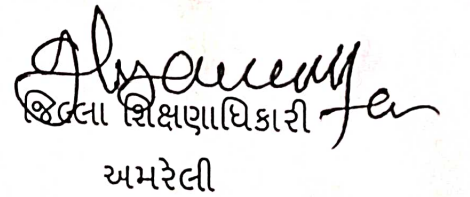 જિલ્લા શિક્ષણાધિકારી
અમરેલી